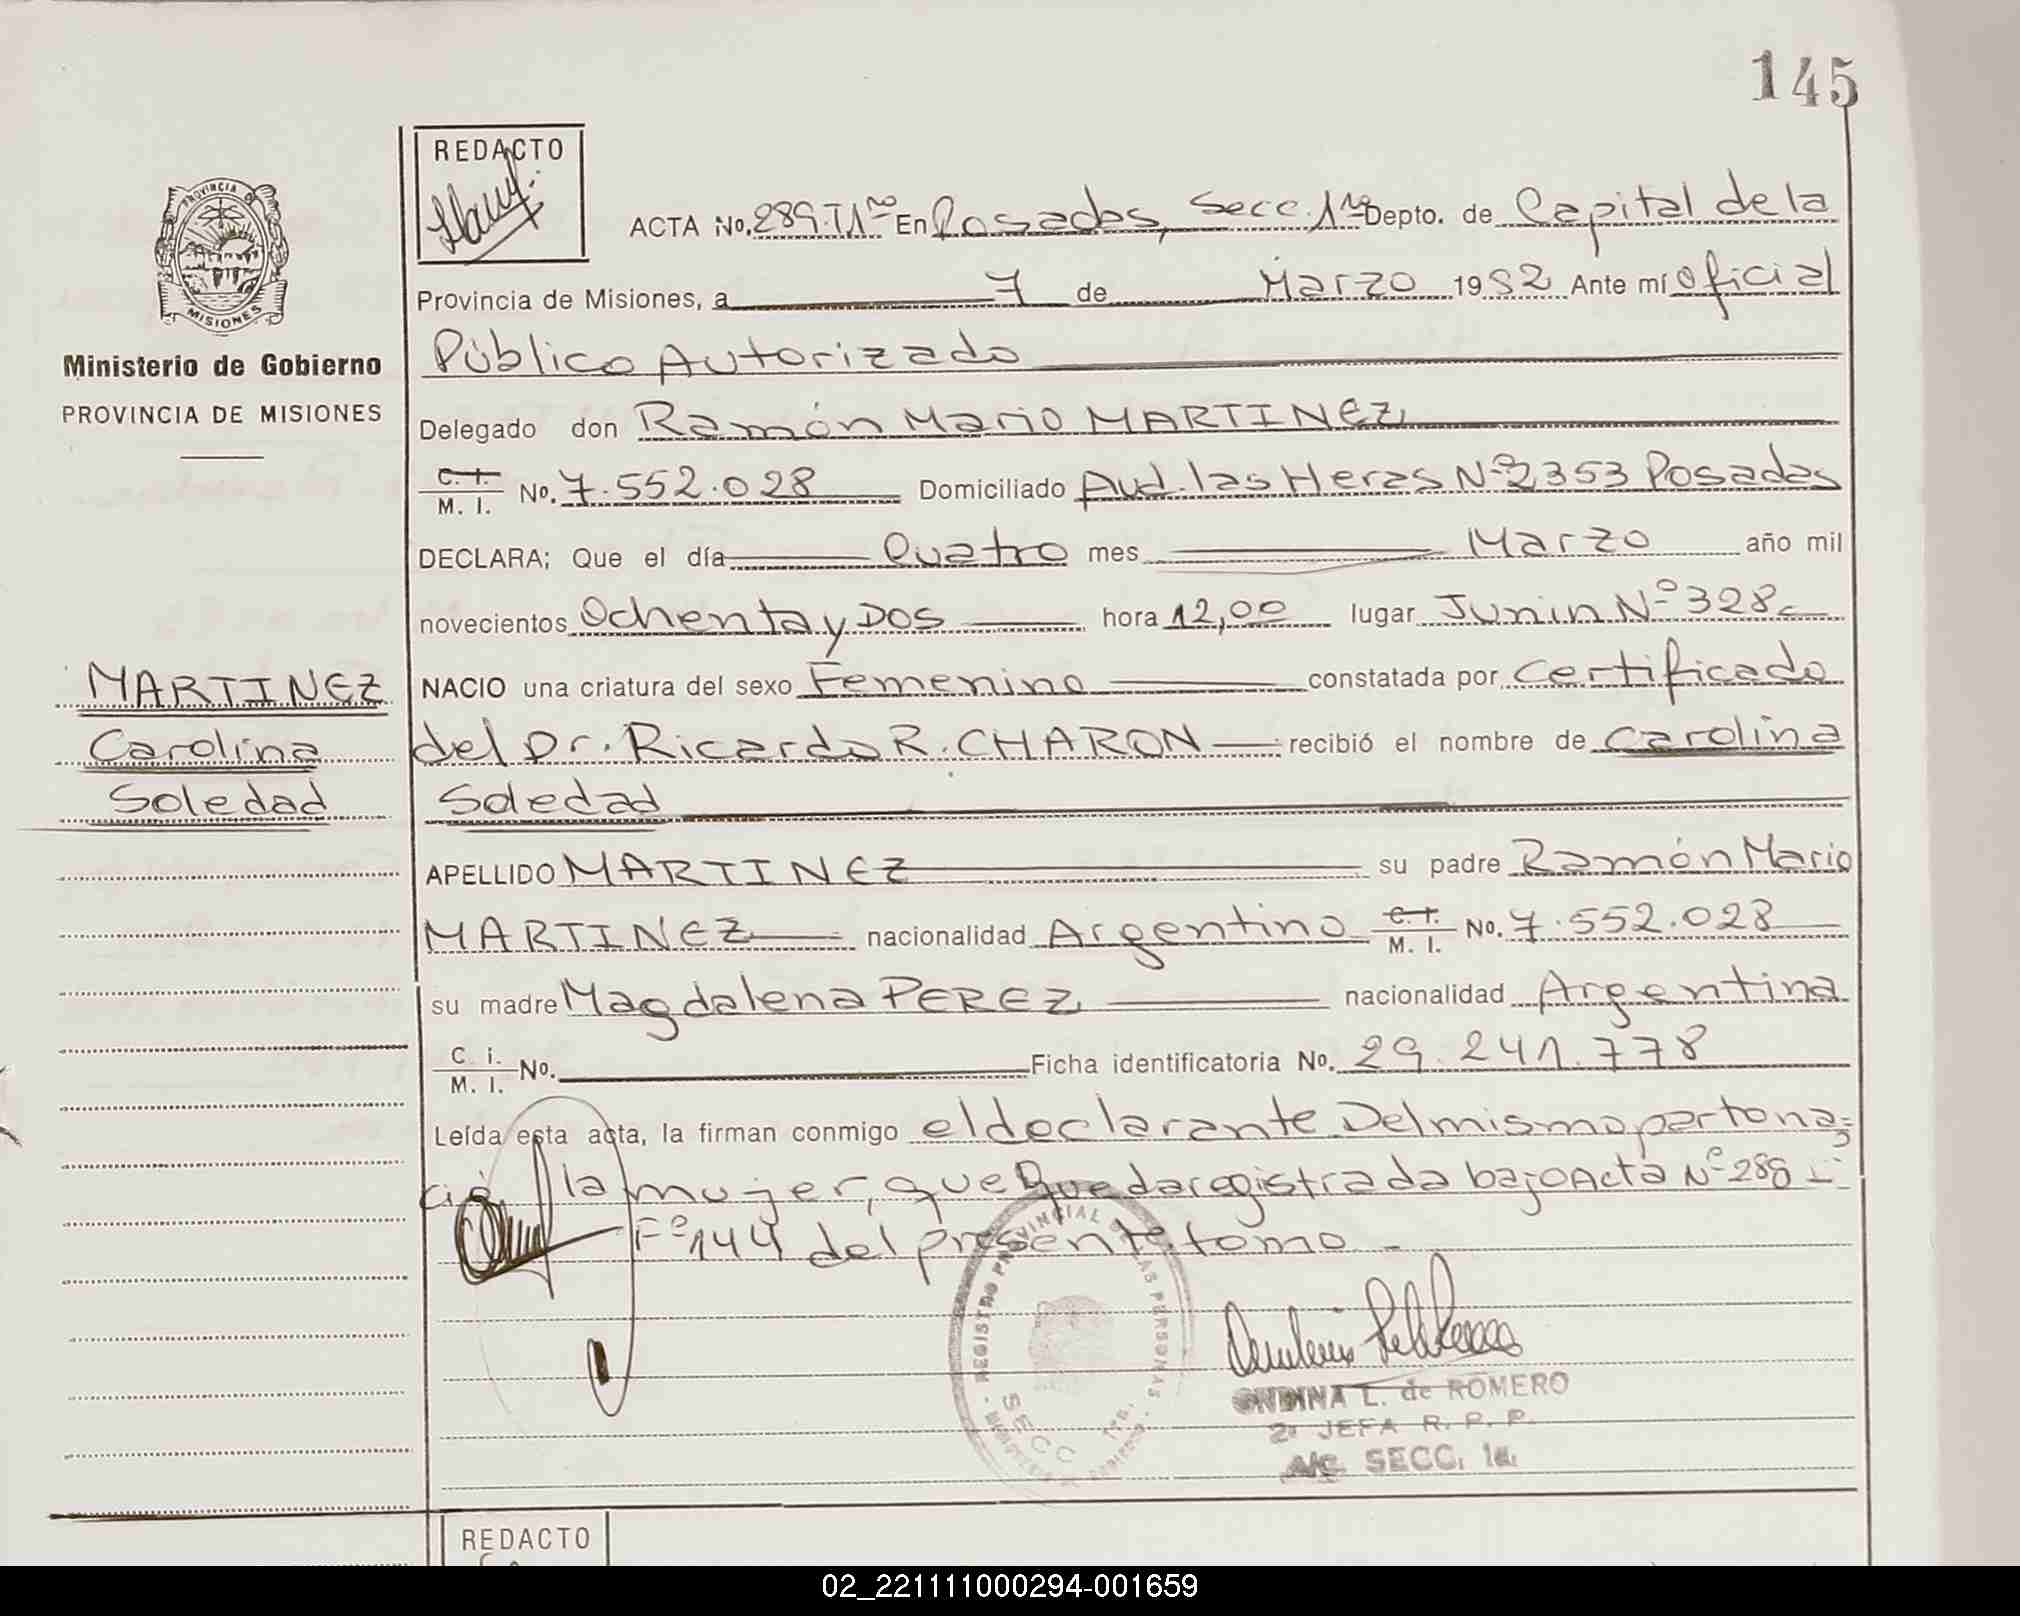 145
REDACTO
PROVINCIA DE
MISIONES
Ministerio de Gobierno
PROVINCIA DE MISIONES
ACTA No. 289.T1ro En Posadas, Secc. 1ra Depto. de Capital de la
Provincia de Misiones, a 7 de Marzo 1982 Ante mí oficial
Público Autorizado
Delegado don Ramón Mario MARTINEZ
C. I. M. I. No. 7.552.028 Domiciliado Avd. las Heras Nº2353 Posadas
DECLARA; Que el día Cuatro mes Marzo año mil
novecientos Ochenta y Dos hora 12,00 lugar Junin Nº 328
NACIO una criatura del sexo Femenino constatada por Certificado
del Dr. Ricardo R. CHARON recibió el nombre de Carolina
Soledad
MARTINEZ
Carolina
Soledad
APELLIDO MARTINEZ su padre Ramón Mario
MARTINEZ nacionalidad Argentino C. I. M. I. No. 7.552.028
su madre Magdalena PEREZ nacionalidad Argentina
C. i. M. I. No. Ficha identificatoria No. 29.241.778
Leída esta acta, la firman conmigo el declarante Del mismo parto na-
ció la mujer, que Queda registrada bajo Acta Nº 288
Fº 144 del presente tomo
REGISTRO PROVINCIAL DE LAS PERSONAS
SECC 1ra.
ONDINA L. de ROMERO
2ª JEFA R. P. P.
A/C. SECC. 1a.
REDACTO
02_221111000294-001659